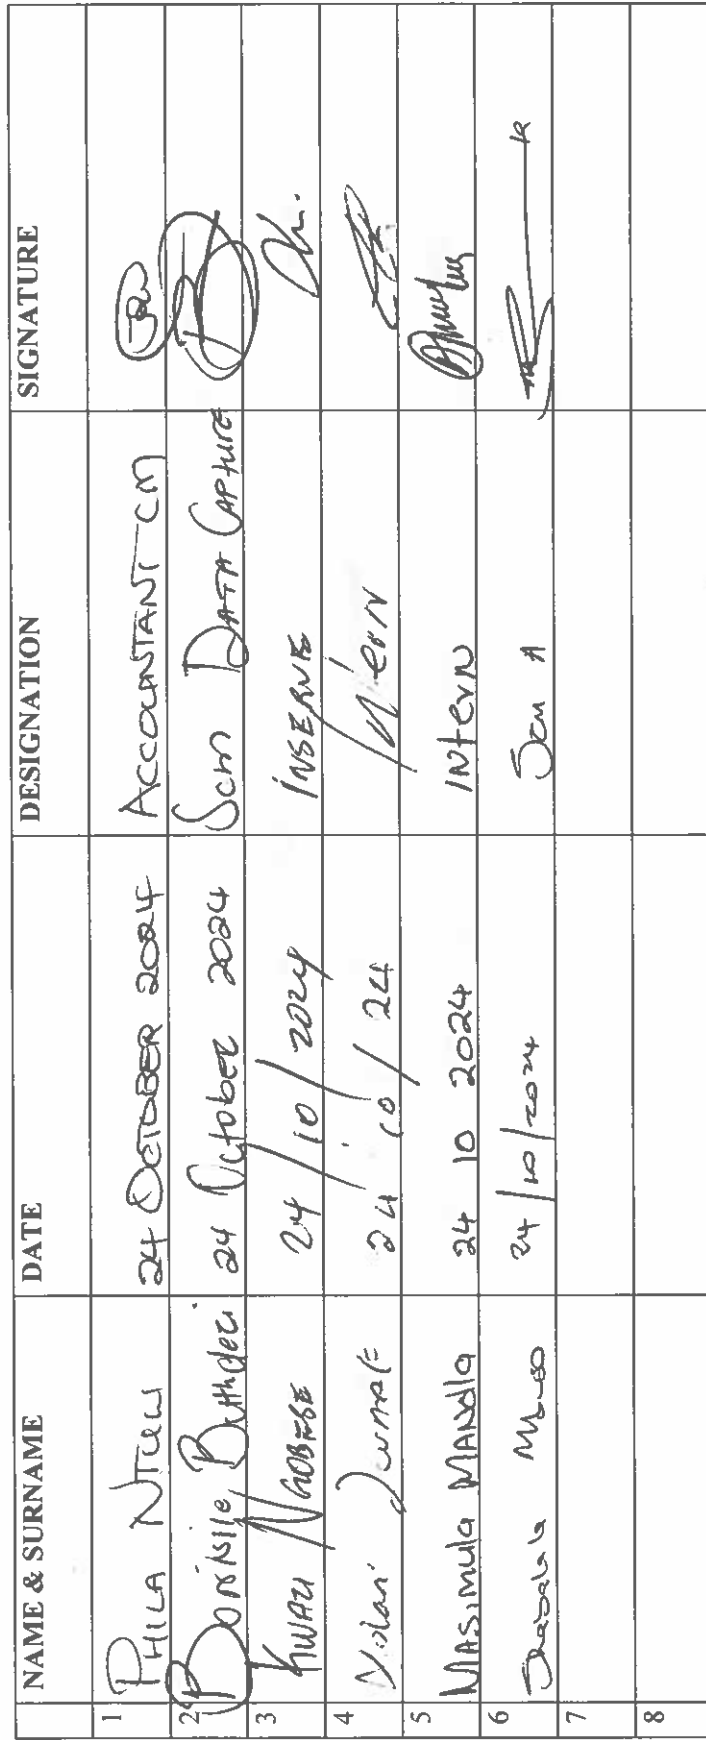 NAME & SURNAME DATE DESIGNATION SIGNATURE
1 PHILA NTULI 24 OCTOBER 2024 ACCOUNTANT CM
2 BONISILE Buthelezi 24 October 2024 Scm DATA CAPTURE
3 KWAZI NGOBESE 24/10/2024 INSERVE
4 24/10/24 Intern
5 MASimula MANdla 24 10 2024 INtern
6 24/10/2024 Scm A
7
8